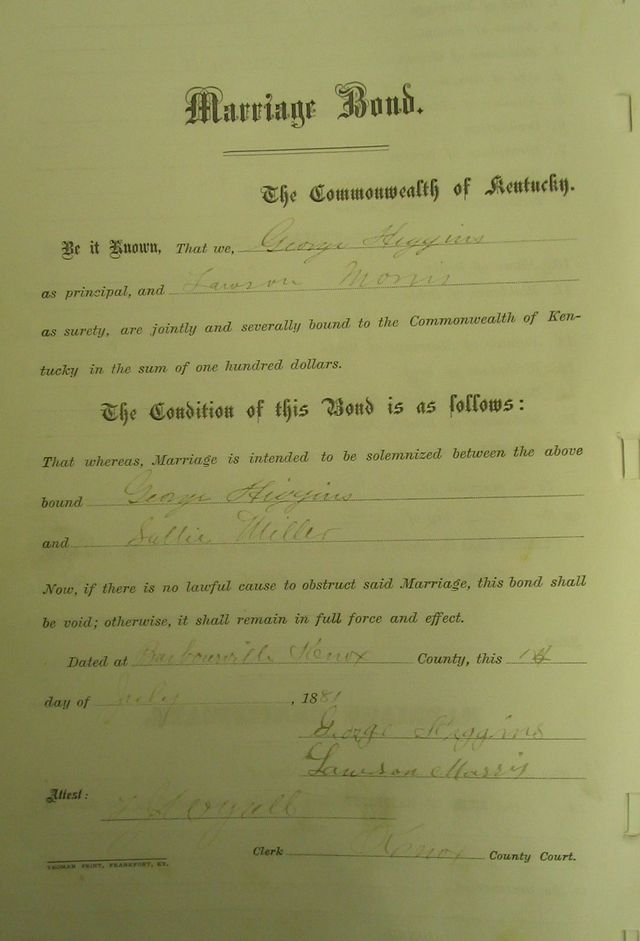 Marriage Bond.
The Commonwealth of Kentucky.
Be it Known, That we, George Higgins
as principal, and Lawson Morris
as surety, are jointly and severally bound to the Commonwealth of Ken-
tucky in the sum of one hundred dollars.
The Condition of this Bond is as follows:
That whereas, Marriage is intended to be solemnized between the above
bound George Higgins
and Sallie Miller
Now, if there is no lawful cause to obstruct said Marriage, this bond shall
be void; otherwise, it shall remain in full force and effect.
Dated at Barbourville Knox County, this
day of July, 1881
George Higgins
Lawson Morris
Attest:
Clerk Knox County Court.
YEOMAN PRINT, FRANKFORT, KY.